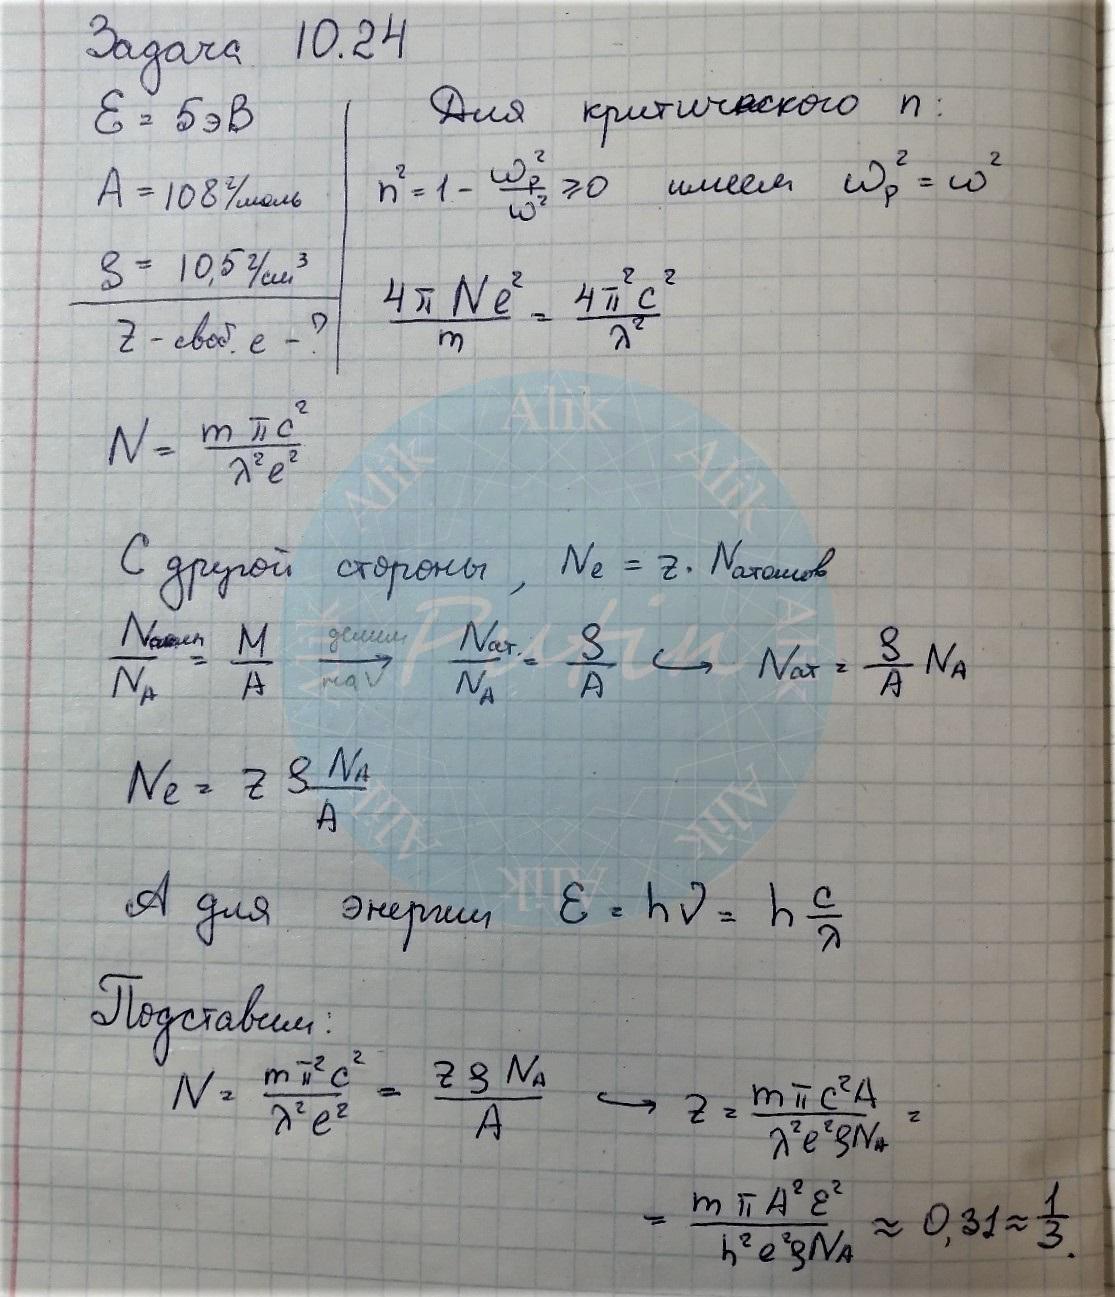 Задача 10.24
ℰ = 5 эВ
A = 108 г/моль
ρ = 10,5 г/см³
z - своб. e - ?
Для критического n:
n² = 1 - ωp²/ω² ⩾ 0 имеем ωp² = ω²
4π N e²/m = 4π²c²/λ²
N = mπc²/λ²e²
С другой стороны, Ne = z · Nатомов
Nатом/NA = M/A делим на V → Nат./NA = ρ/A ↪ Nат = ρ/A NA
Ne = z ρ NA/A
А для энергии ℰ = hν = h c/λ
Подставим:
N = mπ²c²/λ²e² = zρNA/A ↪ z = mπc²A/λ²e²ρNA =
= mπA²ℰ²/h²e²ρNA ≈ 0,31 ≈ 1/3.
Alik
Alik
Alik
Alik
Alik
Alik
Alik
Alik
Putin